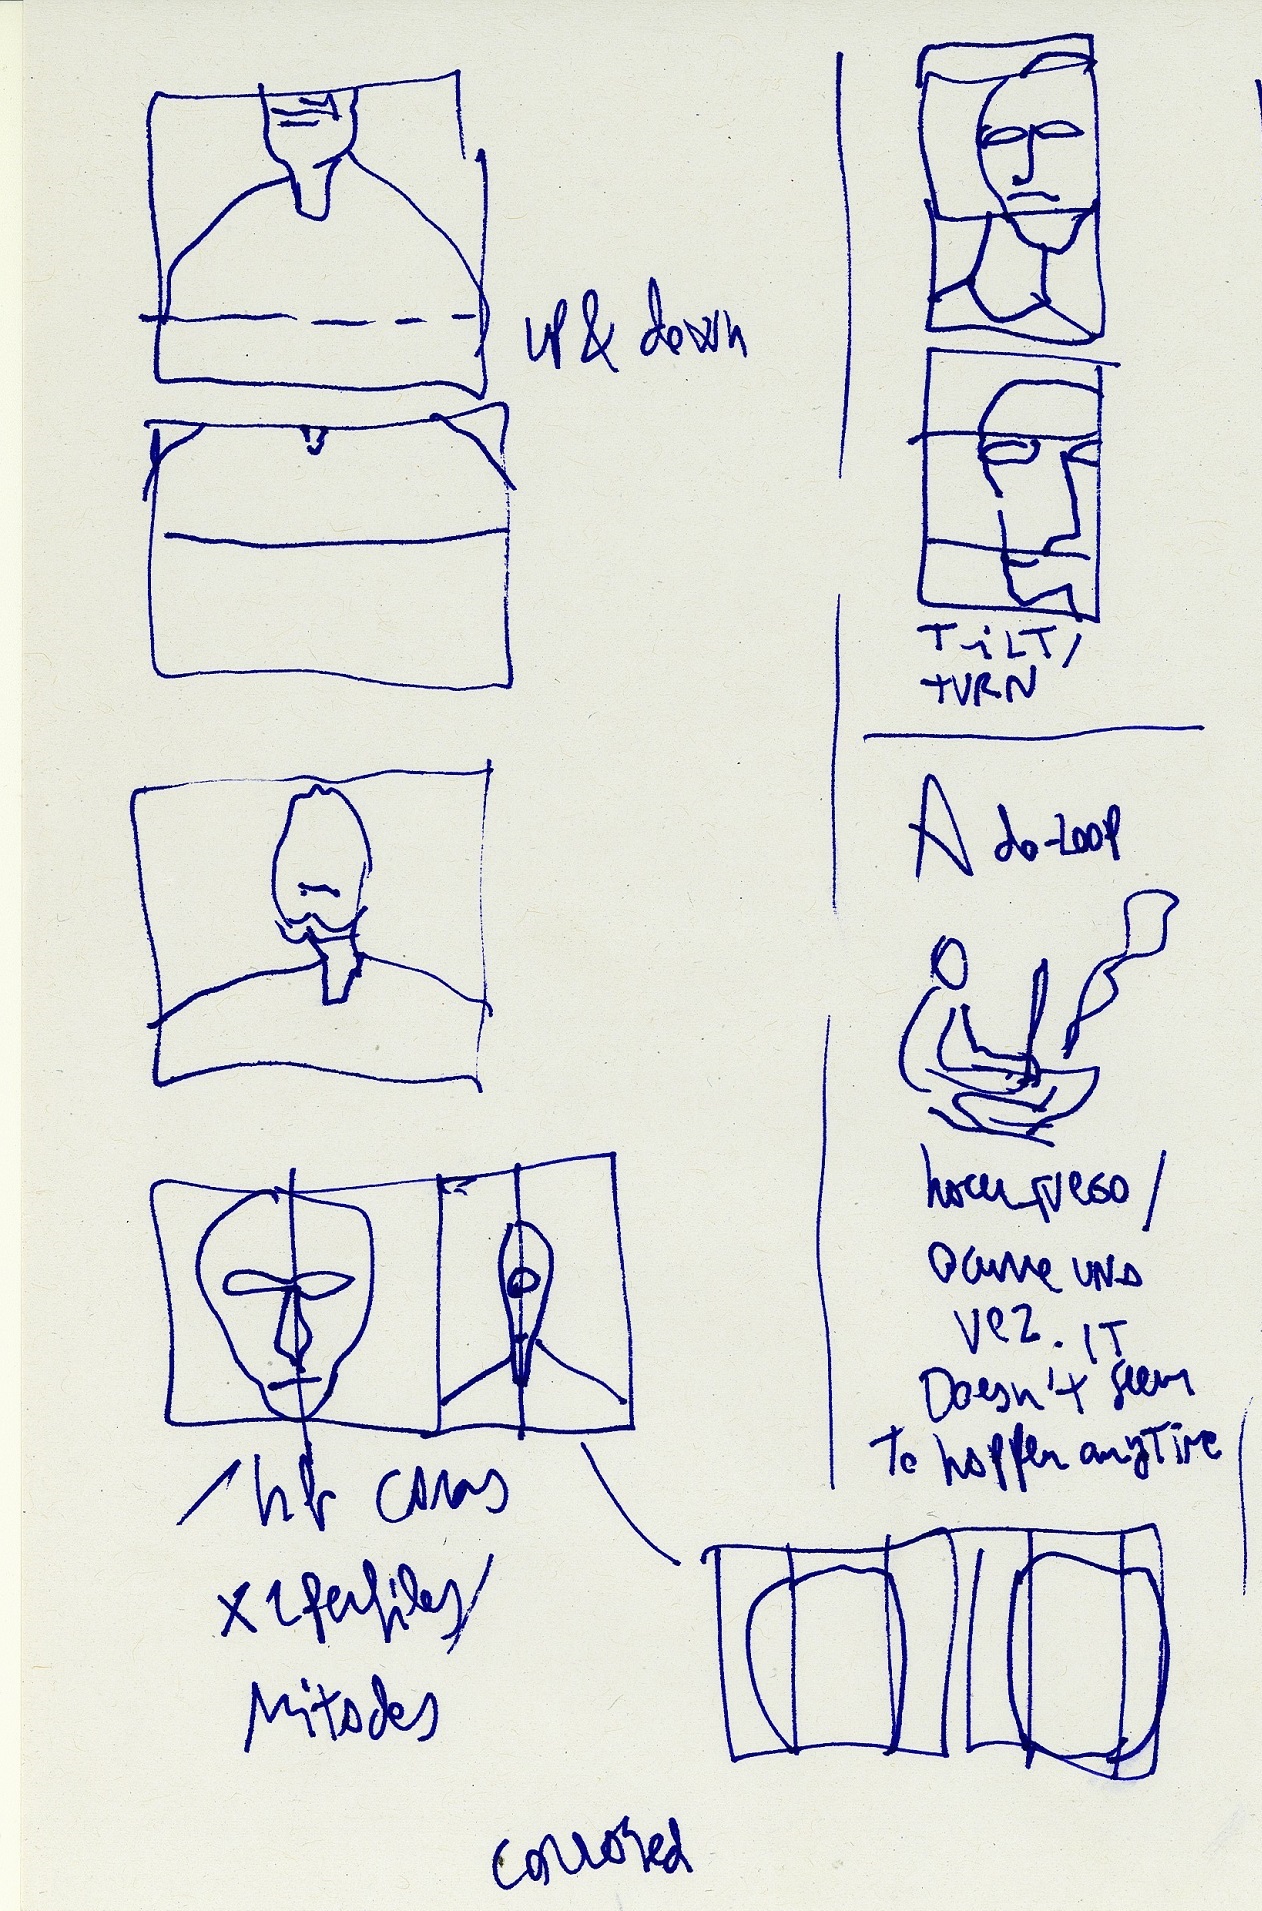 UP & down
TiLT/
TURN
A do-LOOP
hacer fuego /
ocurre una
vez. IT
Doesn't seem
To happen anyTime
caras
x 2 perfiles/
Mitades